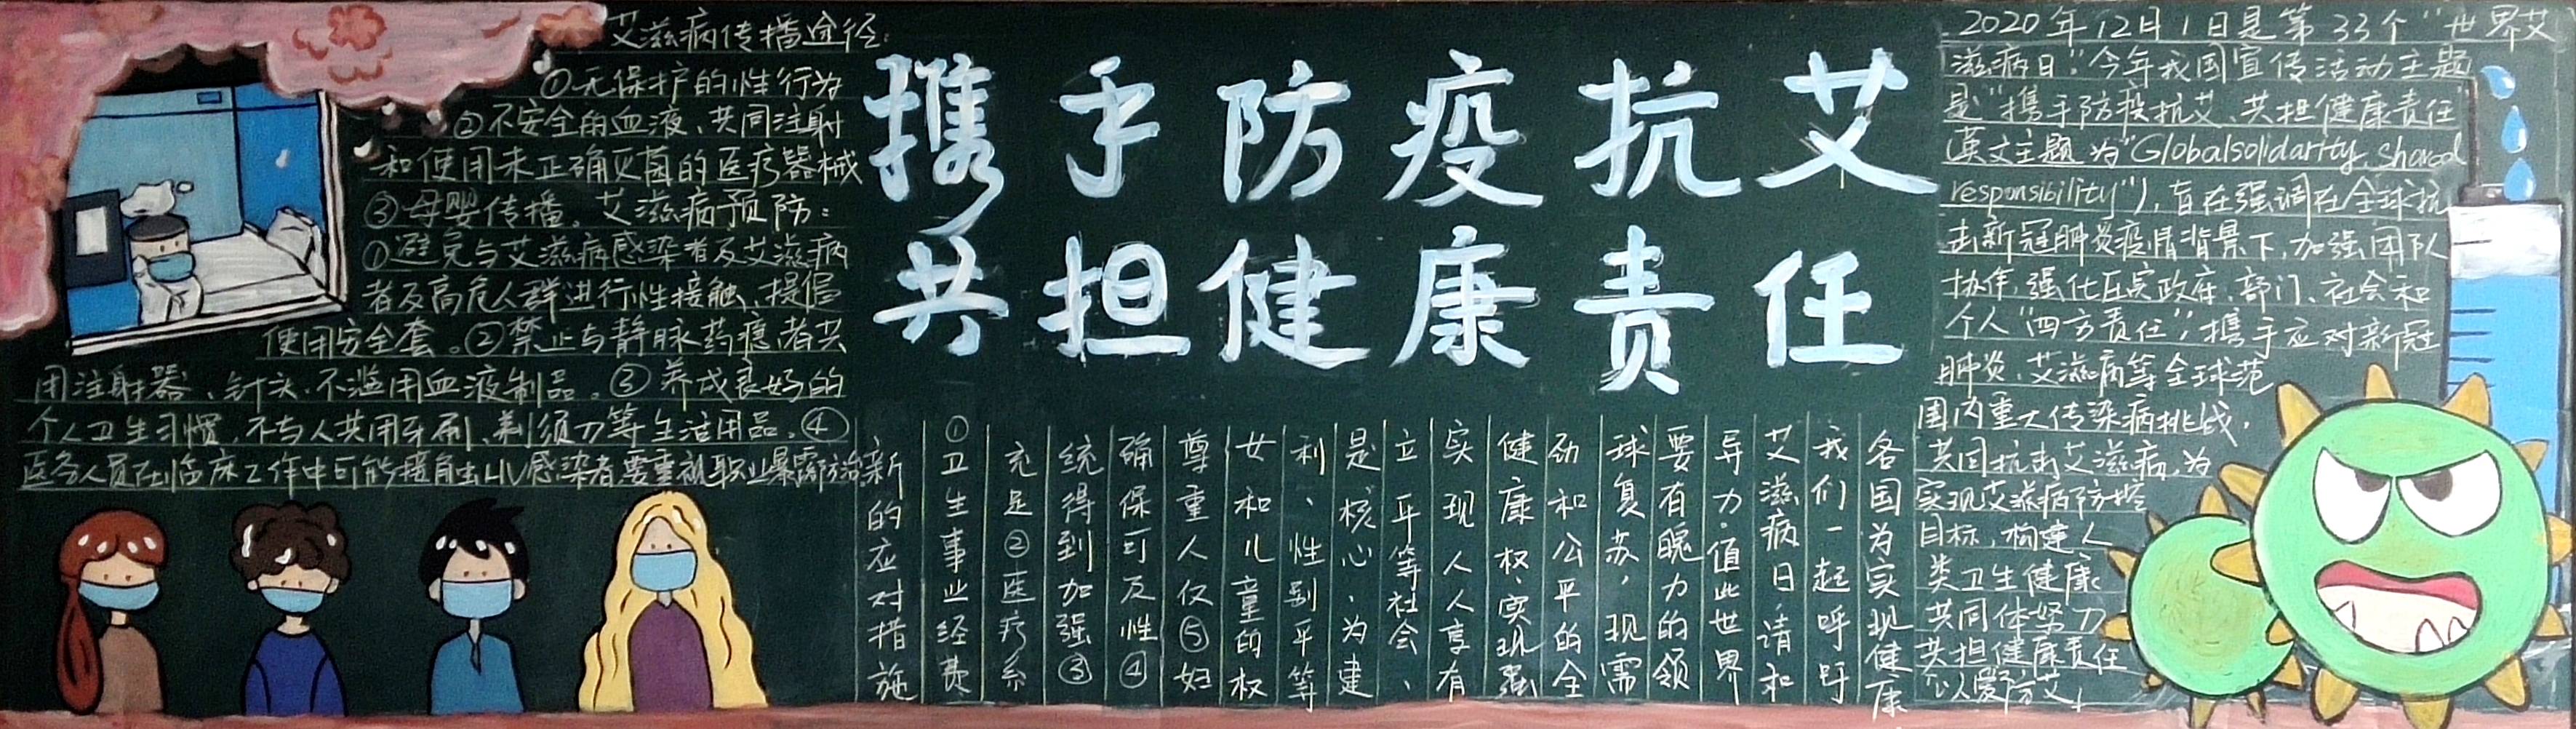 艾滋病传播途径:
①无保护的性行为
②不安全的血液、共同注射
和使用未正确灭菌的医疗器械
③母婴传播。艾滋病预防:
①避免与艾滋病感染者及艾滋病
者及高危人群进行性接触、提倡
使用安全套。②禁止与静脉药瘾者共
用注射器、针头.不滥用血液制品。③养成良好的
个人卫生习惯,不与人共用牙刷、剃须刀等生活用品。④
医务人员在临床工作中可能接触HIV感染者要重视职业暴露防治
携手防疫抗艾
共担健康责任
各国为实现健康
我们一起呼吁
艾滋病日,请和
导力.值此世界
要有魄力的领
球复苏,现需
劲和公平的全
健康权、实现强
实现人人享有
立平等社会、
是核心,为建
利、性别平等
女和儿童的权
尊重人权⑤妇
确保可及性④
统得到加强③
充足②医疗系
①卫生事业经费
新的应对措施
2020年12月1日是第33个“世界艾
滋病日”.今年我国宣传活动主题
是“携手防疫抗艾、共担健康责任”
(英文主题为“Globalsolidarity, shared
responsibility”),旨在强调在全球抗
击新冠肺炎疫情背景下,加强团队
协作,强化压实政府、部门、社会和
个人“四方责任”,携手应对新冠
肺炎、艾滋病等全球范
围内重大传染病挑战,
共同抗击艾滋病,为
实现艾滋病防控
目标,构建人
类卫生健康
共同体努力
共担健康责任